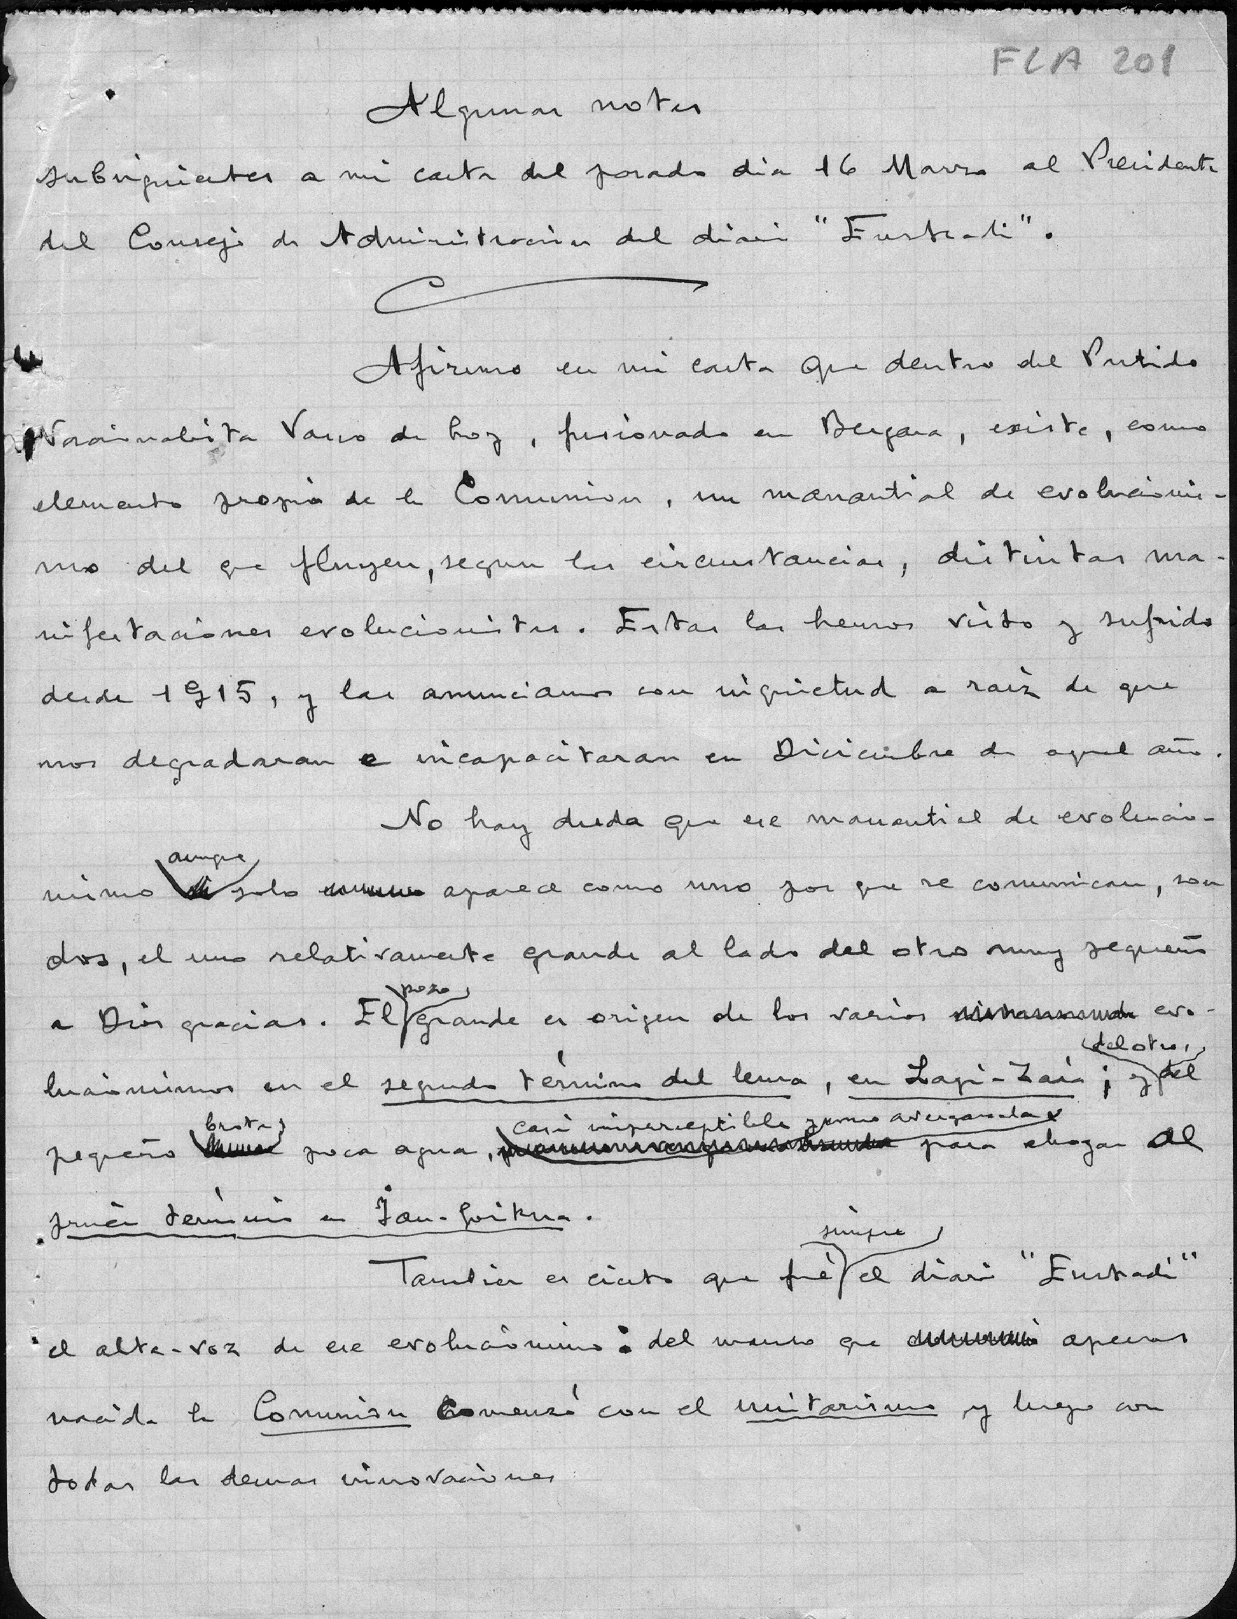 FLA 201
Algunas notas
subsiguientes a mi carta del pasado dia 16 Marzo al Presidente
del Consejo de Administracion del diario "Euzkadi".
Afirmo en mi carta que dentro del Partido
Nacionalista Vasco de hoy, fusionado en Bergara, existe, como
elemento propio de la Comunion, un manantial de evolucionis-
mo del que fluyen, segun las circunstancias, distintas ma-
nifestaciones evolucionistas. Estas las hemos visto y sufrido
desde 1915, y las anunciamos con inquietud a raiz de que
nos degradaran e incapacitaran en Diciembre de aquel año.
No hay duda que ese manantial de evolucio-
aunque
nismo solo aparece como uno por que se comunican, son
dos, el uno relativamente grande al lado del otro muy pequeño
pozo
a Dios gracias. El grande es origen de los varios evo-
del otro,
lucionismos en el segundo término del lema, en Lagi-Zaŕa; y del
brota casi imperceptible y como avergonzada
pequeño poca agua, para ahogar al
primer término en Jau-Goikua.
siempre
Tambien es cierto que fué el diario "Euzkadi"
el alta-voz de ese evolucionismo: del mismo que apenas
nacida la Comunion comenzó con el unitarismo y luego con
todas las demas innovaciones